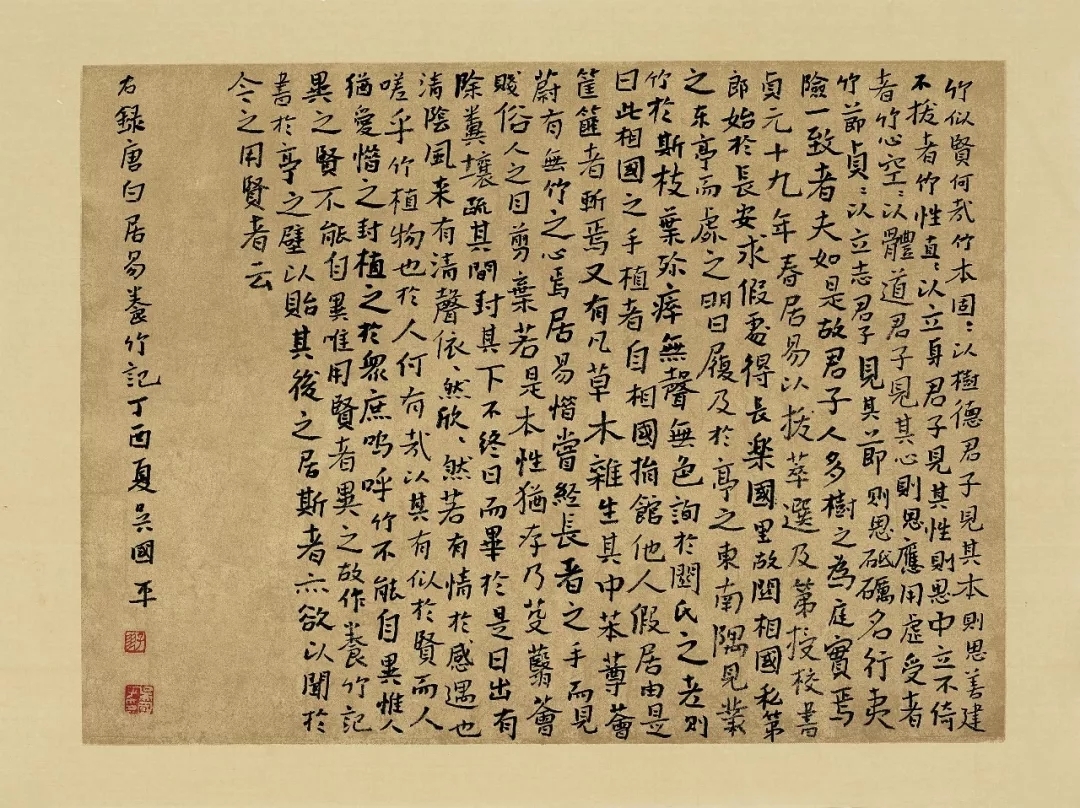 竹似賢何哉竹本固〻以樹德君子見其本則思善建
不拔者竹性直〻以立身君子見其性則思中立不倚
者竹心空〻以體道君子見其心則思應用虛受者
竹節貞〻以立志君子見其節則思砥礪名行夷
險一致者夫如是故君子人多樹之為庭實焉
貞元十九年春居易以拔萃選及第授校書
郎始於長安求假處得長樂國里故關相國私第
之东亭而處之明日履及於亭之東南隅見叢
竹於斯枝葉殄瘁無聲無色詢於關氏之老則
曰此相國之手植者自相國捐館他人假居由是
筐篚者斬焉又有凡草木雜生其中苯䔿薈
蔚有無竹之心焉居易惜嘗經長者之手而見
賤俗人之目剪棄若是本性猶存乃芟蘙薈
除糞壤疏其間封其下不終日而畢於是日出有
清陰風来有清聲依〻然欣〻然若有情於感遇也
嗟乎竹植物也於人何有哉以其有似於賢而人
猶愛惜之封植之於眾庶嗚呼竹不能自異惟人
異之賢不能自異唯用賢者異之故作養竹記
書於亭之壁以貽其後之居斯者亦欲以聞於
今之用賢者云
右録唐白居易養竹記丁酉夏吳國平